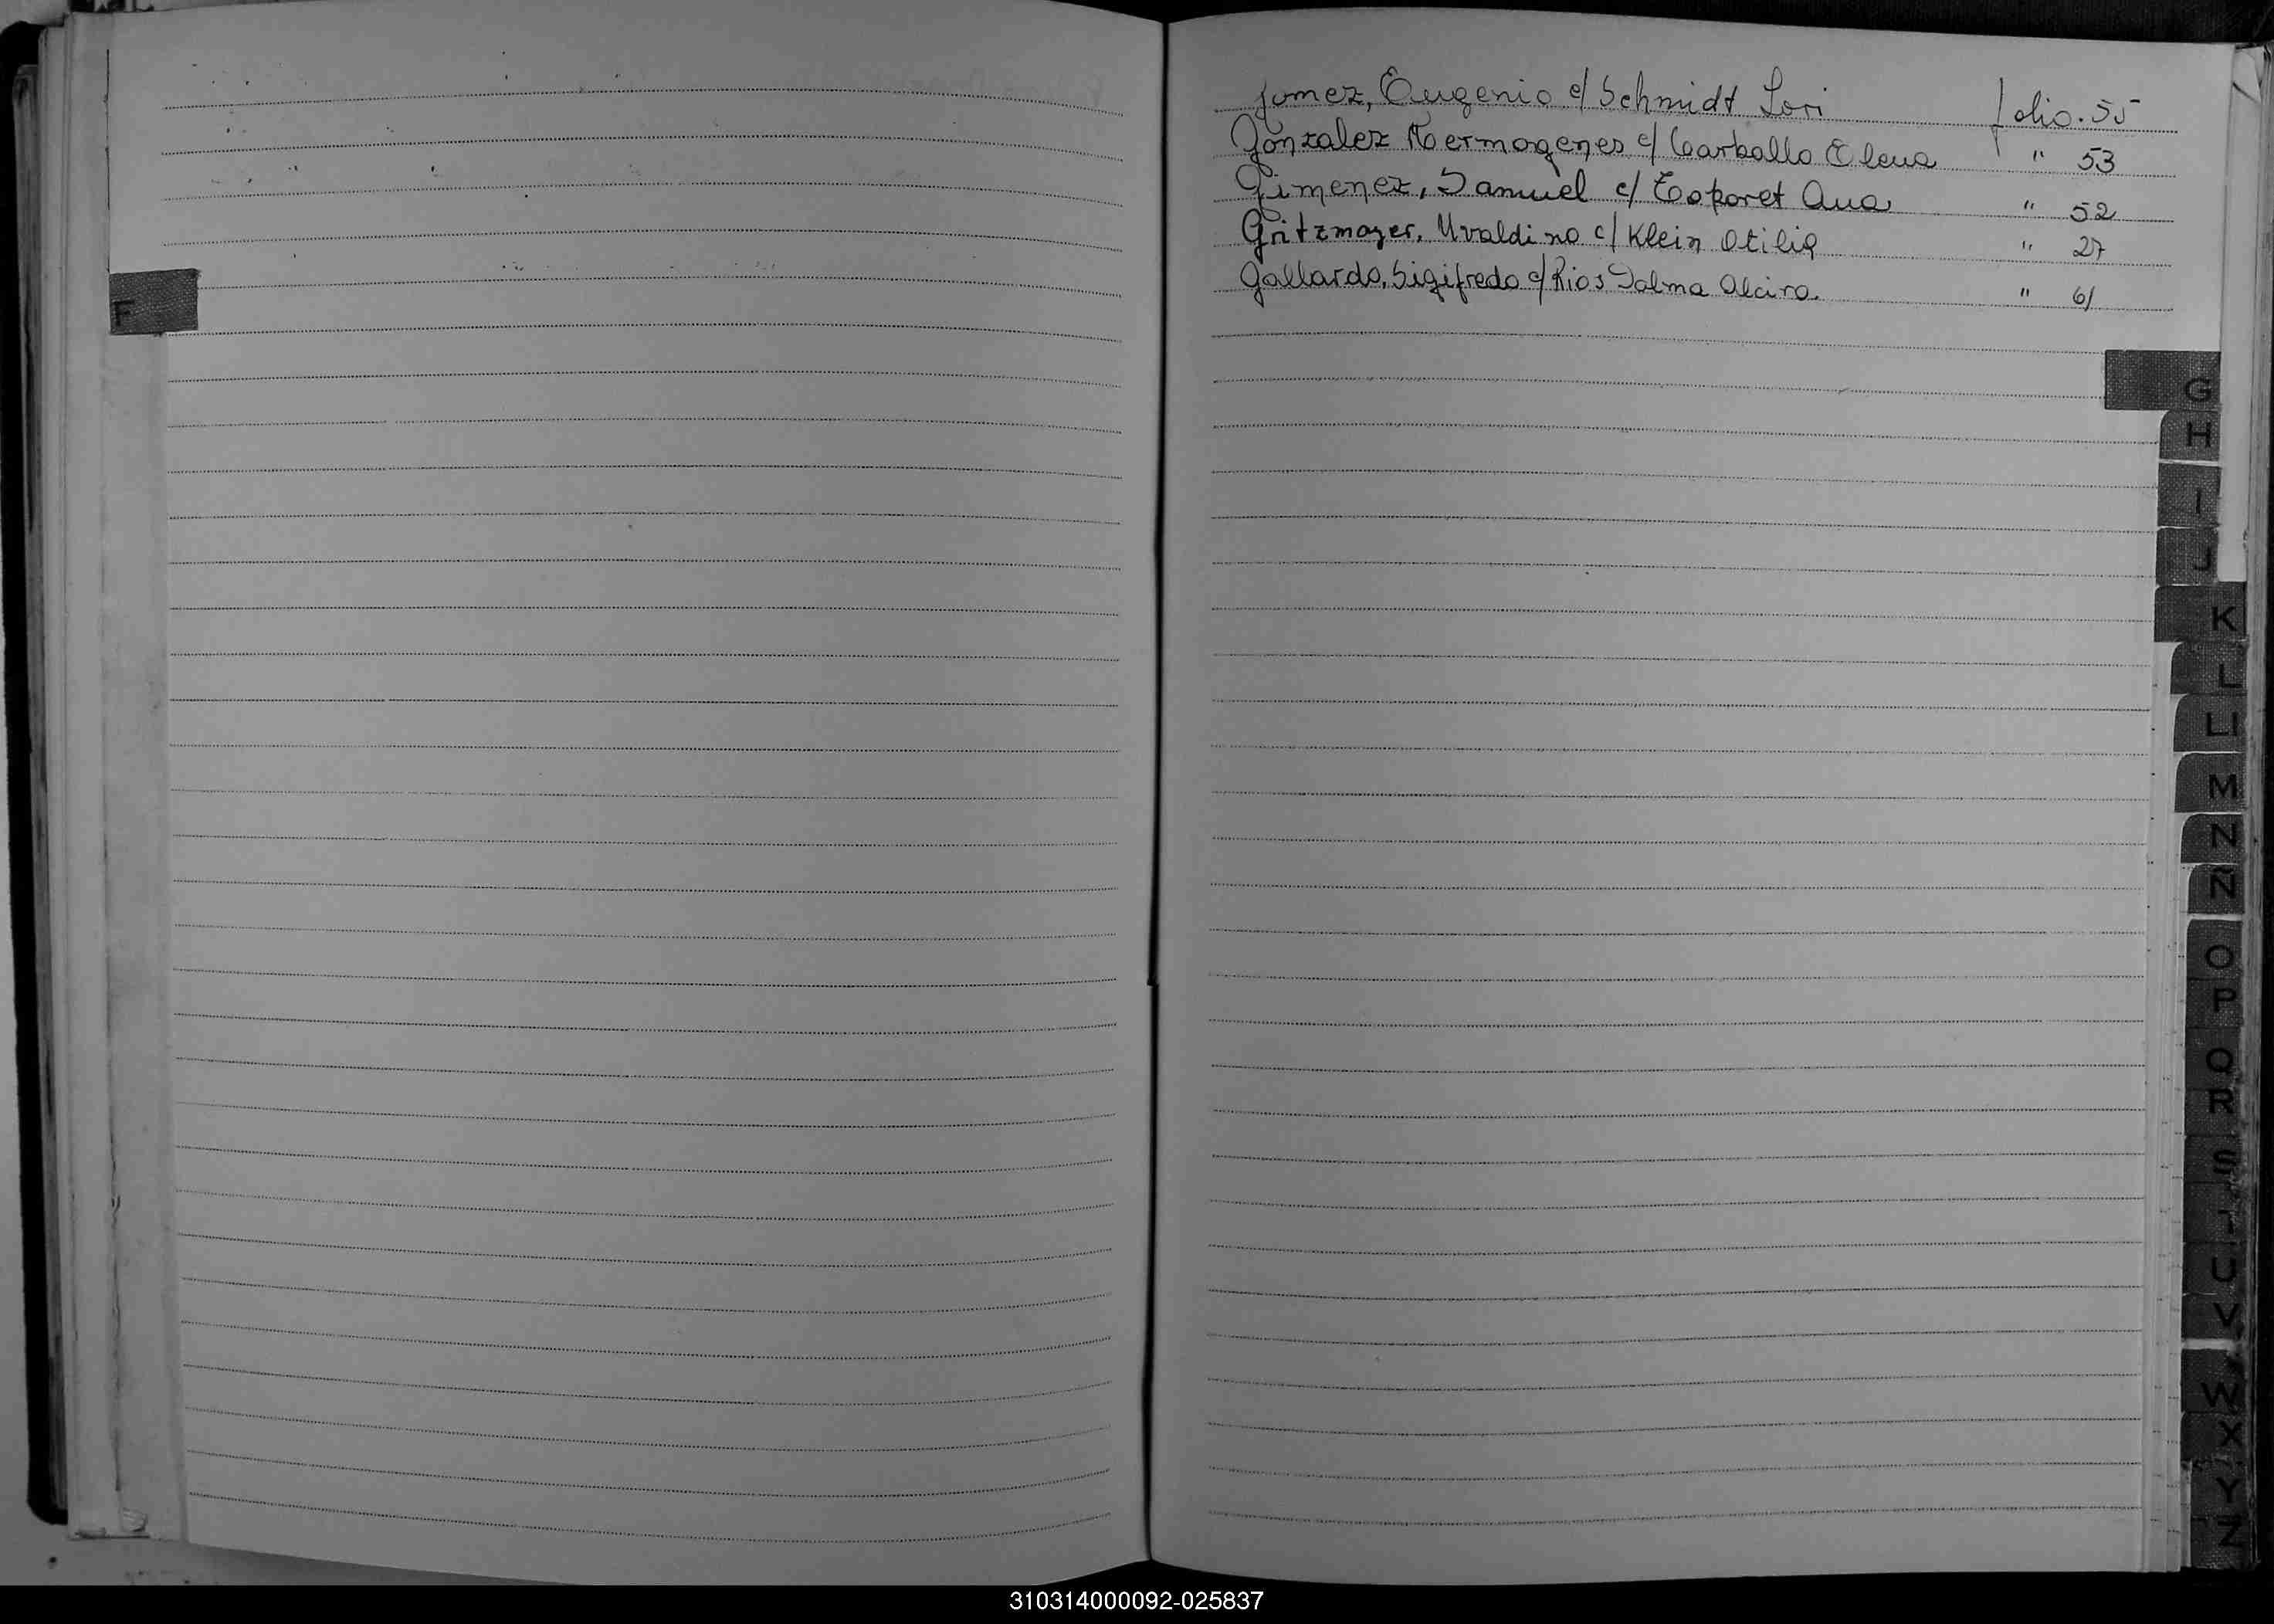 F
Gomez, Eugenio c/ Schmidt Lori folio. 55
Gonzalez Hermogenes c/ Carballo Elena " 53
Gimenez, Samuel c/ Ana " 52
Gritzmayer, Uvaldino c/ Klein Otilia " 27
Gallardo, Sigifredo c/ Rios Dalma Alcira. " 61
G
H
I
J
K
L
Ll
M
N
Ñ
O
P
Q
R
S
T
U
V
W
X
Y
Z
310314000092-025837